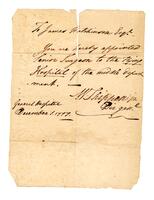 To James Hutchinson Esqr.
You are hereby appointed
Senior Surgeon to the Flying
Hospital of the middle depart
ment.
W Shippen jr.
Dir. genl.
General Hospital
December 1. 1777.